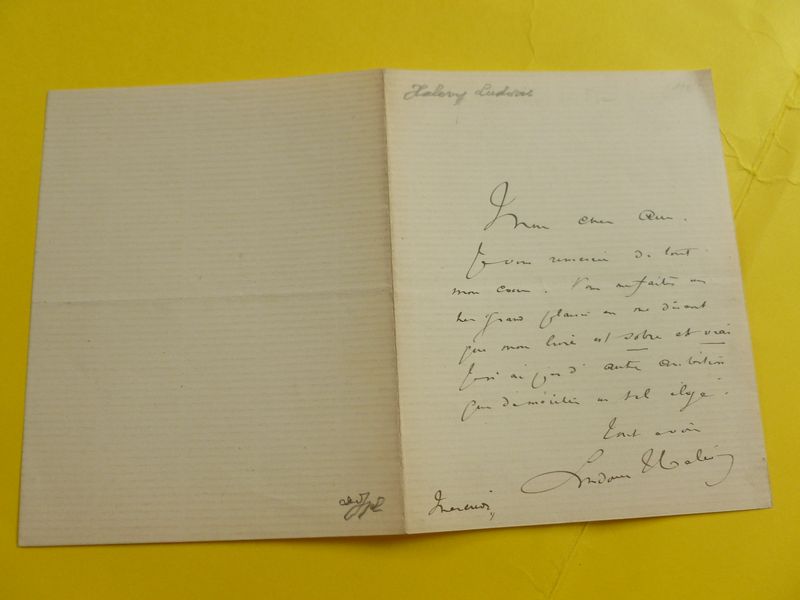 Halevy Ludovic
Mon cher ami.
Je vous remercie de tout
mon cœur. Vous me faites un
très grand plaisir en me disant
que mon livre est sobre et vrai
Je n'ai pas d'autre ambition
que de mériter un tel éloge.
Tout à vous
Ludovic Halévy
Mercredi,